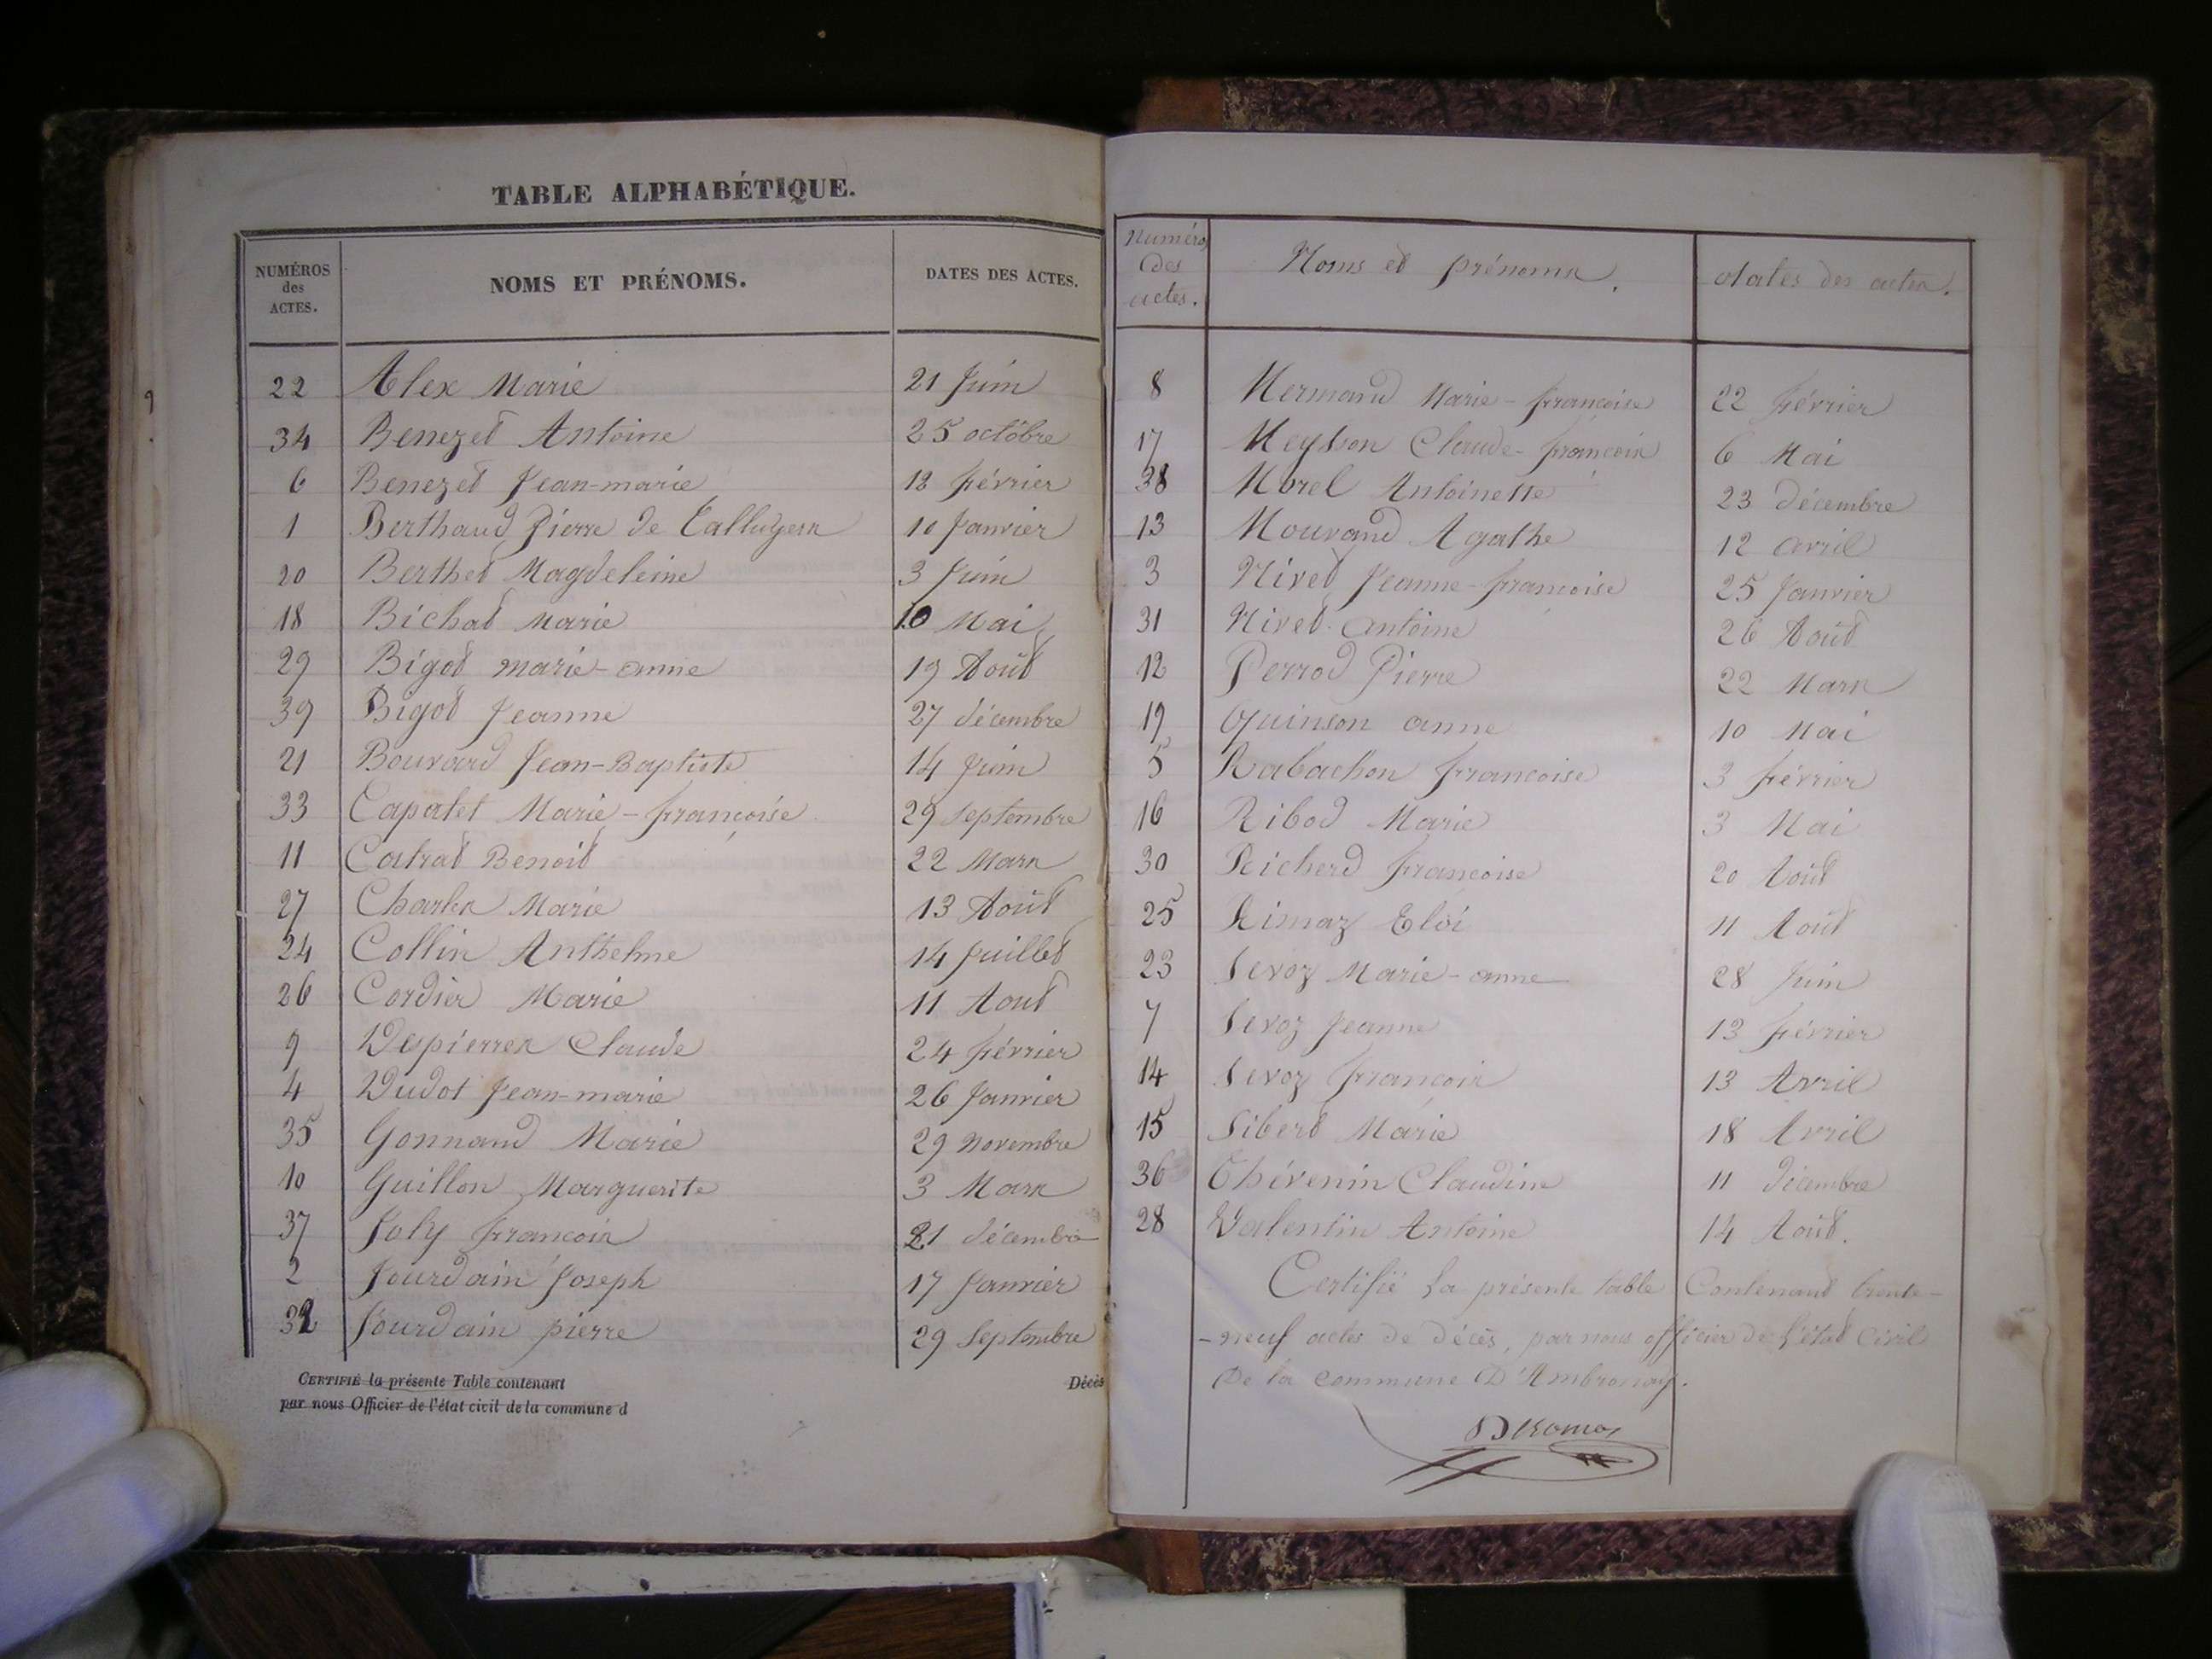 TABLE ALPHABÉTIQUE.
NUMÉROS des ACTES. NOMS ET PRÉNOMS. DATES DES ACTES.
22 Alex Marie 21 Juin
34 Benezet Antoine 25 octobre
6 Benezet Jean-marie 13 Février
1 Berthaud Pierre de 10 Janvier
20 Berthet Magdeleine 3 Juin
18 Bichat Marie 10 Mai
29 Bigot marie-anne 19 Août
39 Bigot Jeanne 27 décembre
21 Bouvard Jean-Baptiste 14 Juin
33 Capatet Marie-françoise 29 Septembre
11 Catrat Benoit 22 Mars
27 Charles Marie 13 Août
24 Collin Anthelme 14 Juillet
26 Cordier Marie 11 Aout
9 Despierres Claude 24 février
4 Dudot Jean-marie 26 Janvier
35 Gonnand Marie 29 novembre
10 Guillon Marguerite 3 Mars
37 Joly françois 21 décembre
2 Jourdain Joseph 17 Janvier
32 Jourdain pierre 29 Septembre
CERTIFIÉ la présente Table contenant Décès
par nous Officier de l'état civil de la commune d
Numéros des actes. Noms et prénoms. dates des actes.
8 Mermand Marie-françoise 22 février
17 Meysson Claude-françois 6 Mai
38 Morel Antoinette 23 décembre
13 Mourand Agathe 12 avril
3 Nivet Jeanne-francoise 25 Janvier
31 Nivet antoine 26 Août
12 Perrod Pierre 22 Mars
19 Quinson anne 10 Mai
5 Rabachon francoise 3 février
16 Ribod Marie 3 Mai
30 Richerd francoise 20 Août
25 Rimaz Eloi 11 Août
23 Sevoz Marie-anne 28 Juin
7 Sevoz Jeanne 13 février
14 Sevoz françois 13 Avril
15 Sibert Marie 18 Avril
36 Thévenin Claudine 11 décembre
28 Valentin Antoine 14 Août.
Certifié la présente table Contenant trente-
-neuf actes de décès, par nous officier de l'état civil
De la commune D'Ambronay.